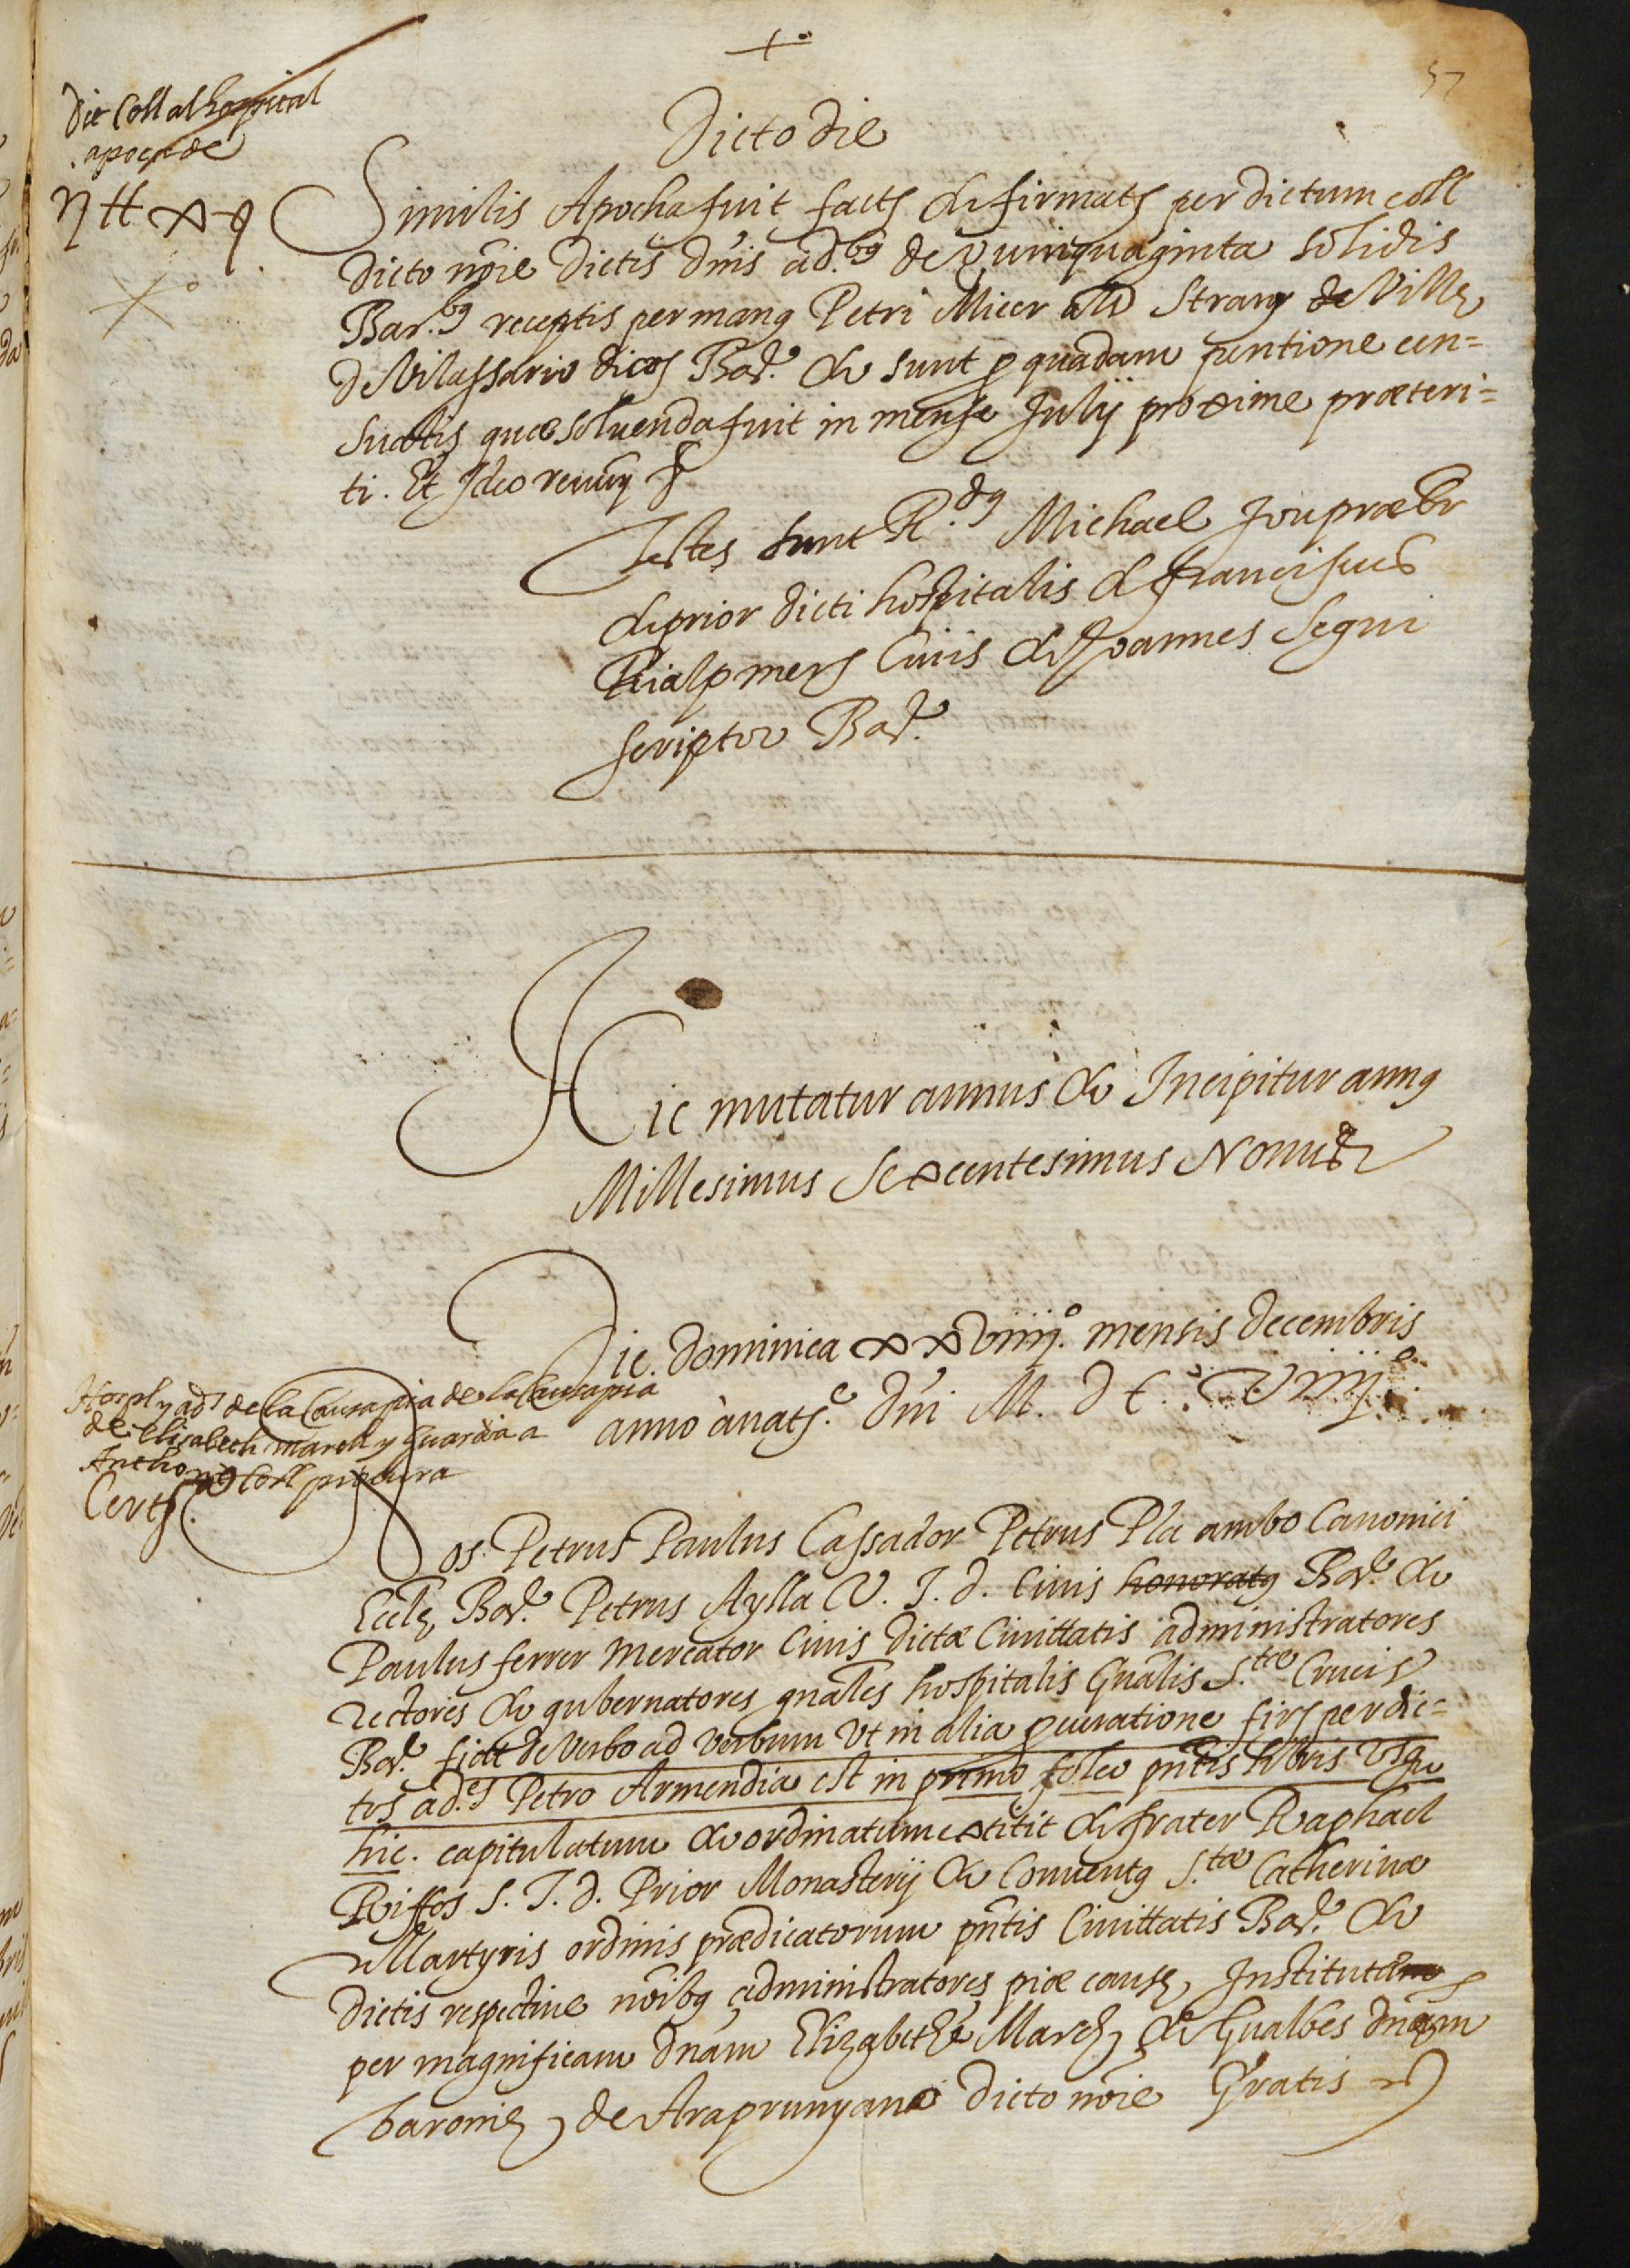 57
Dit Coll al hospital
apoca de
Dicto die
Similis Apocha fuit facta & firmata per dictum coll
dicto nõie dictis dñis ad.bus de quinquaginta solidis
Bar.bus receptis per manus Petri Micer als Strany de Villa
de Vilassario dioces Bar.e & sunt p quadam puntione cen=
sualis quæ solvenda fuit in mense Julij proxime præteri=
ti. Et Ideo renun &
Testes sunt R.dus Michael Jou præbr
& prior dicti hospitalis & franciscus
Rialp mers Civis & Joannes Segui
scriptor Bar.e
Hic mutatur annus & Incipitur annus
Millesimus Sexcentesimus Nonus
Die dominica xxviiij.o mensis decembris
anno ànat.e dñi M. D C. viiij.o
Hospl y ad.s de la Causa pia de la Causa pia
de Elisabech march y Guardia a
Anthoni Coll procura
Cert.
Nos Petrus Paulus Cassador Petrus Pla ambo Canonici
Eccle Bar.e Petrus Aylla V. J. d. Civis honoratus Bar.e &
Paulus ferrer Mercator Civis dictæ Civittatis administratores
rectores & gubernatores gnales hospitalis Gnalis S.tæ Crucis
Bar.e fiat de verbo ad verbum Vt in alia pcuratione firs per dic=
tos ad.es Petro Armendia est in primo foleo pñtis libris Vsqu
hic. capitulatum & ordinatum extitit & frater Raphael
Riffos S. T. d. Prior Monasterij & Conventus S.tæ Catherinæ
Martyris ordinis prædicatorum pñtis Civittatis Bar.e &
dictis respective nõibus administratores piæ causæ Institutæ
per magnificam dñam Elizabethe March & Gualbes dñam
baroniæ de Araprunyano dicto nõie Gratis &